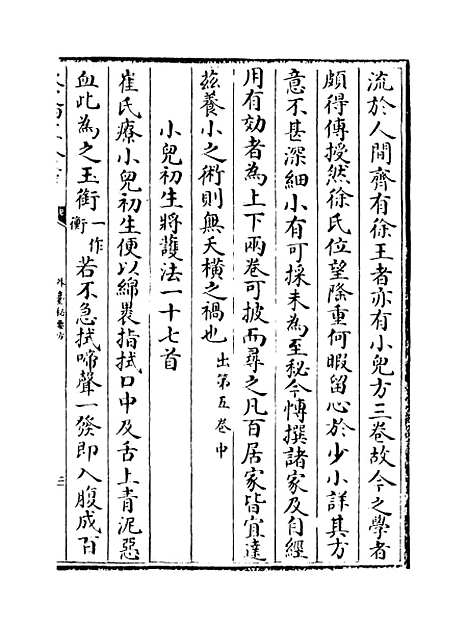 流於人間齊有徐王者亦有小兒方三卷故今之學者
頗得傳授然徐氏位望隆重何暇留心於少小詳其方
意不甚深細小有可採未為至秘今慱撰諸家及自經
用有効者為上下兩卷可披而尋之凡百居家皆宜達
兹養小之術則無夭橫之禍也出第五卷中
小兒初生將護法一十七首
崔氏療小兒初生便以綿褁指拭口中及舌上青泥惡
血此為之玉衡一作衡若不急拭啼聲一發即入腹成百
外臺秘要方
三